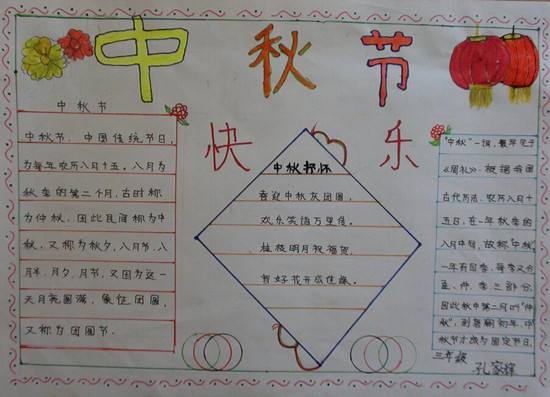 中秋节
快乐
中秋节
中秋节,中国传统节日,
为每年农历八月十五。八月为
秋季的第二个月,古时称
为仲秋,因此民间称为中
秋,又称为秋夕,八月节,八
月半,月夕,月节,又因为这一
天月亮圆满,象征团圆,
又称为团圆节。
中秋抒怀
喜迎中秋庆团圆,
欢乐笑语万里传。
桂枝明月祝福贺,
智好花开成佳缘。
"中秋"一词,最早见于
《周礼》。根据我国
古代历法,农历八月十
五日,在一年秋季的
八月中旬,故称"中秋"
一年有四季,每季又分
孟、仲、季三部分,
因此秋中第二月叫"仲
秋",到唐朝初年,中
秋节才成为固定节日。
三年级
孔家